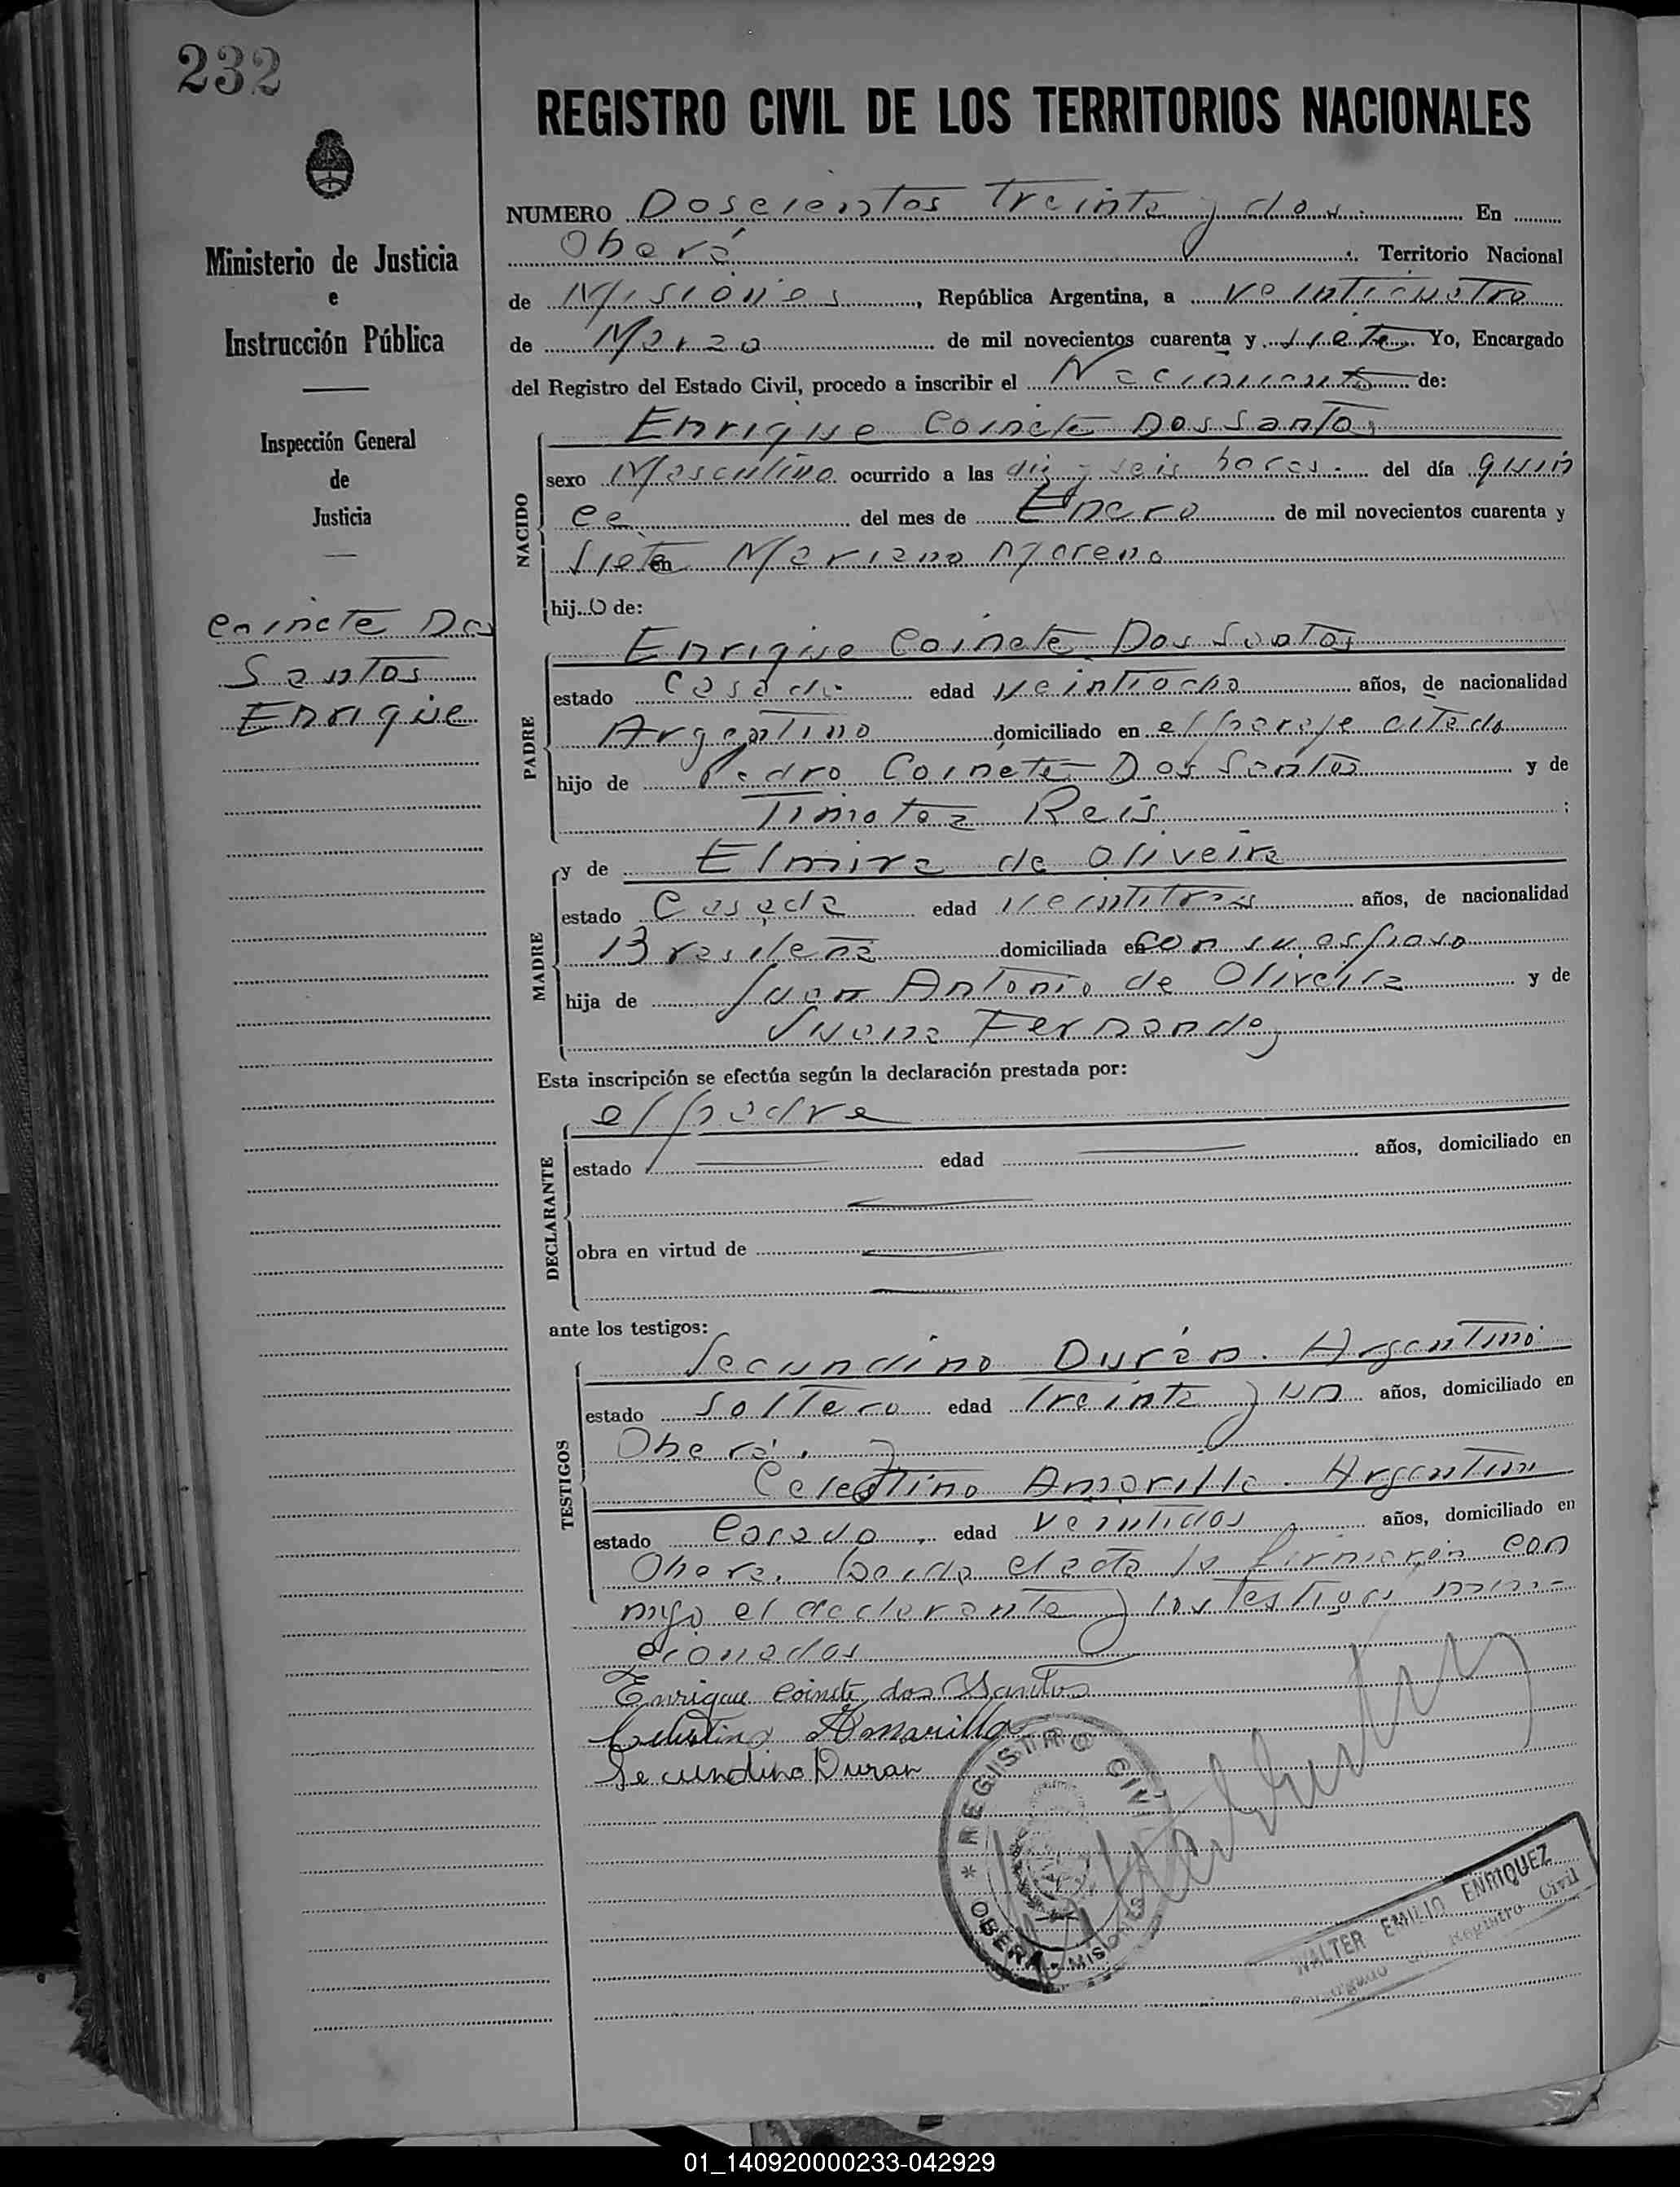 232
REGISTRO CIVIL DE LOS TERRITORIOS NACIONALES
NUMERO Doscientos Treinta y dos. En
Oberá Territorio Nacional
de Misiones, República Argentina, a veinticuatro
de Marzo de mil novecientos cuarenta y siete Yo, Encargado
del Registro del Estado Civil, procedo a inscribir el Nacimiento de:
Ministerio de Justicia
e
Instrucción Pública
Inspección General
de
Justicia
Coincte Dos
Santos
Enrique
NACIDO
Enrique Coincte Dos Santos
sexo Masculino ocurrido a las diez y seis horas.- del día quin
ce del mes de Enero de mil novecientos cuarenta y
siete en Mariano Moreno
hij o de:
PADRE
Enrique Coincte Dos Santos
estado Casado edad veintiocho años, de nacionalidad
Argentino domiciliado en el paraje citado
hijo de Pedro Coincte Dos Santos y de
Timotea Reis ;
MADRE
y de Elmira de Oliveira
estado Casada edad veintitres años, de nacionalidad
Brasileña domiciliada en con su esposo
hija de Juan Antonio de Oliveira y de
Juana Fernandez
Esta inscripción se efectúa según la declaración prestada por:
DECLARANTE
el padre
estado edad años, domiciliado en
obra en virtud de
ante los testigos:
TESTIGOS
Secundino Durán. Argentino
estado Soltero edad Treinta y un años, domiciliado en
Oberá. y
Celestino Amarilla. Argentino
estado Casado, edad veintidos años, domiciliado en
Obera. Leida el acta la firmarón con
migo el declarante y los testigos men-
cionados
Enrique Coincte dos Santos
Celestino Amarilla
Secundino Duran
* REGISTRO CIVIL
OBERA - MISIONES
WALTER EMILIO ENRIQUEZ
Encargado del Registro Civil
01_140920000233-042929